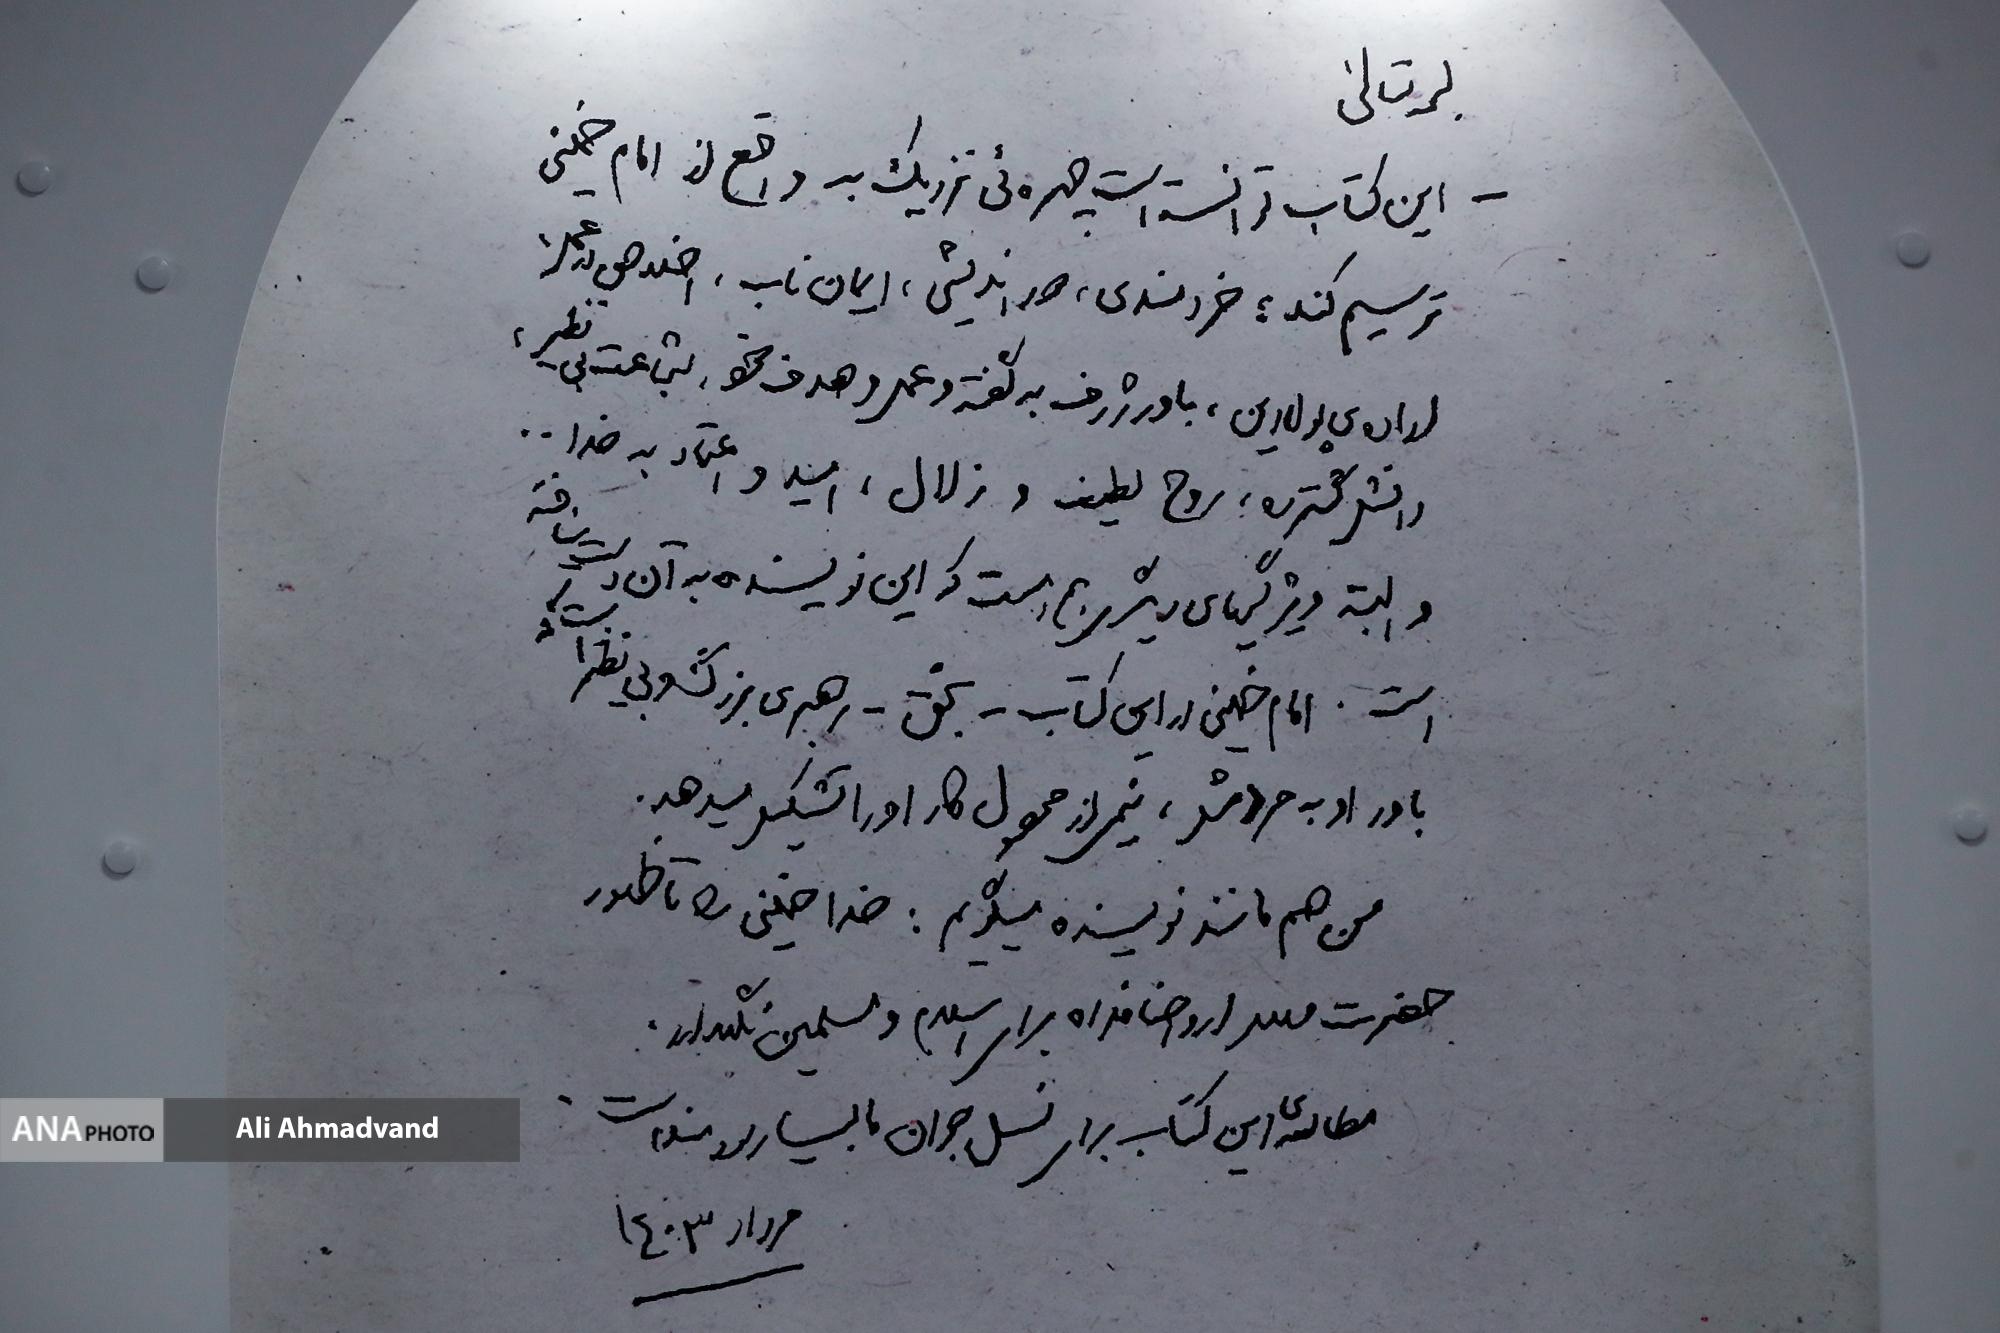 بسمه تعالی
- این کتاب توانسته است چهره‌ئی نزدیک به واقع از امام خمینی
ترسیم کند؛ خردمندی، دوراندیشی، ایمان ناب، اخلاص در عمل،
اراده‌ی پولادین، باور ژرف به گفته و عمل و هدف خود، شجاعت بی‌نظیر،
دانش گسترده، روح لطیف و زلال، امید و اعتماد به خدا ..
و البته ویژگیهای دیگری هم هست که این نویسنده به آن دست نیافته
است. امام خمینی در این کتاب - بحق - رهبری بزرگ و بی‌نظیر است و
باور او به مردمش، نیمی از محصول کار او را تشکیل میدهد.
من هم مانند نویسنده میگویم: خدا خمینی را تا ظهور
حضرت مهدی ارواحنا فداه برای اسلام و مسلمین نگهدارد.
مطالعه‌ی این کتاب برای نسل جوان ما بسیار سودمند است.
مرداد ۱۴۰۳
ANA PHOTO
Ali Ahmadvand